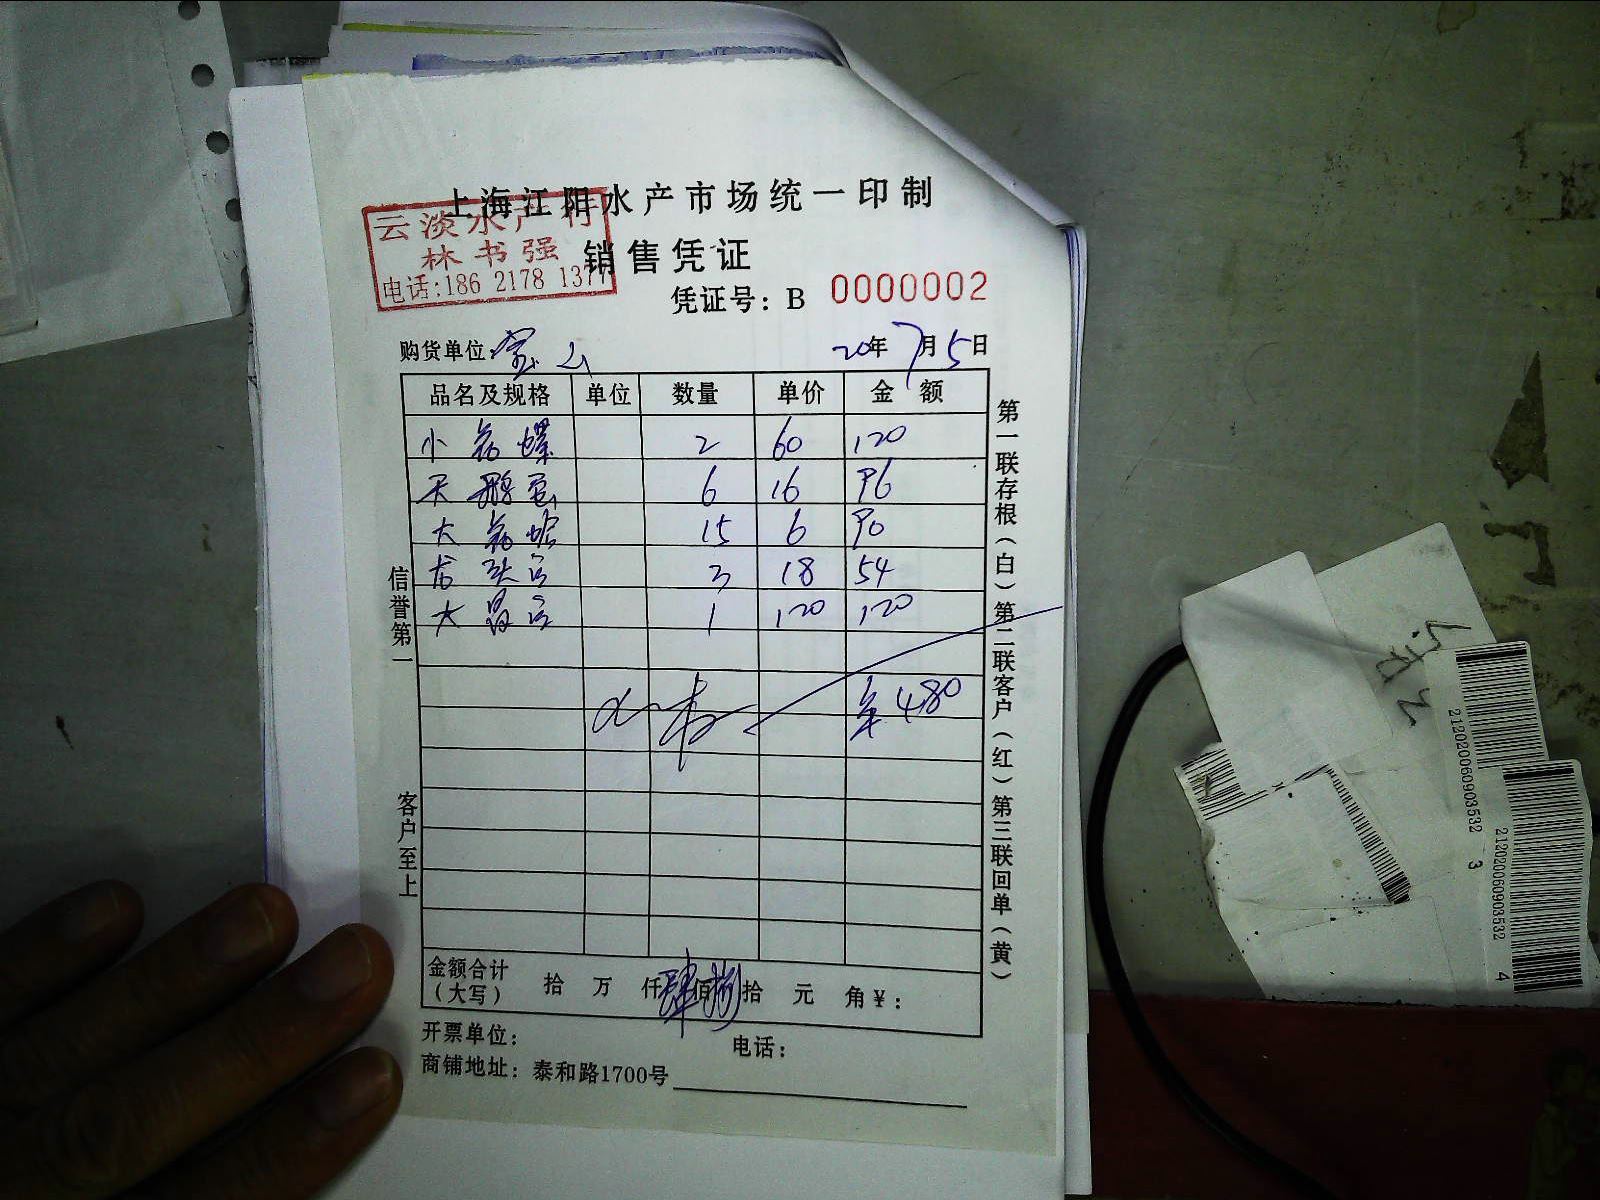 上海江阳水产市场统一印制
云淡水产行
林书强
电话:186 2178 1377
销售凭证
凭证号：B 0000002
购货单位:宝山
20年7月5日
品名及规格 单位 数量 单价 金额
小花螺 2 60 120
天鹅蛋 6 16 96
大花蛤 15 6 90
龙头 3 18 54
大 1 120 120
480
信誉第一
客户至上
第一联存根（白）第二联客户（红）第三联回单（黄）
金额合计（大写） 拾 万 仟肆佰捌拾 元 角￥：
开票单位： 电话：
商铺地址：泰和路1700号
212020060903532 3
212020060903532 4